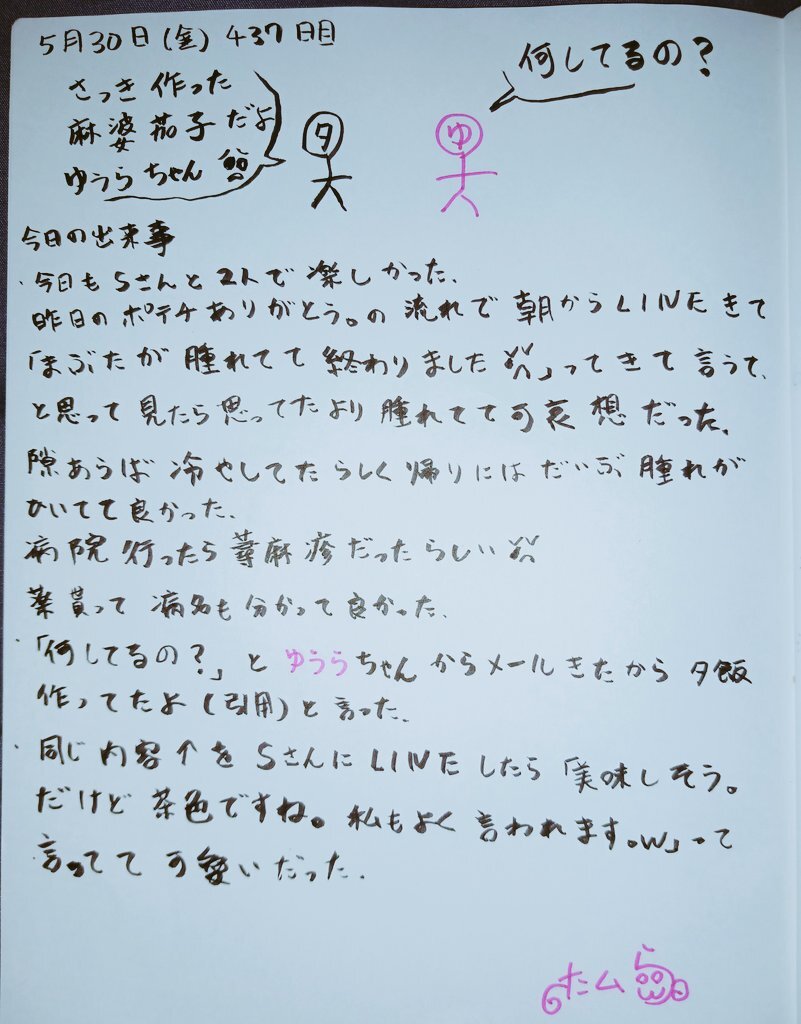 5月30日(金) 437日目
何してるの?
さっき作った
麻婆茄子だよ
ゆうらちゃん
タ
ゆ
今日の出来事
・今日もSさんと2人で楽しかった、
昨日のポテチありがとう。の流れで朝からLINEきて
「まぶたが腫れてて終わりました」ってきて言うて、
と思って見たら思ってたより腫れてて可哀想だった、
隙あらば冷やしてたらしく帰りにはだいぶ腫れが
ひいてて良かった、
病院行ったら蕁麻疹だったらしい
薬貰って病名も分かって良かった、
・「何してるの?」とゆうらちゃんからメールきたから夕飯
作ってたよ(引用)と言った、
・同じ内容↑をSさんにLINEしたら「美味しそう。
だけど茶色ですね。私もよく言われます。w」って
言ってて可愛いだった、
たム